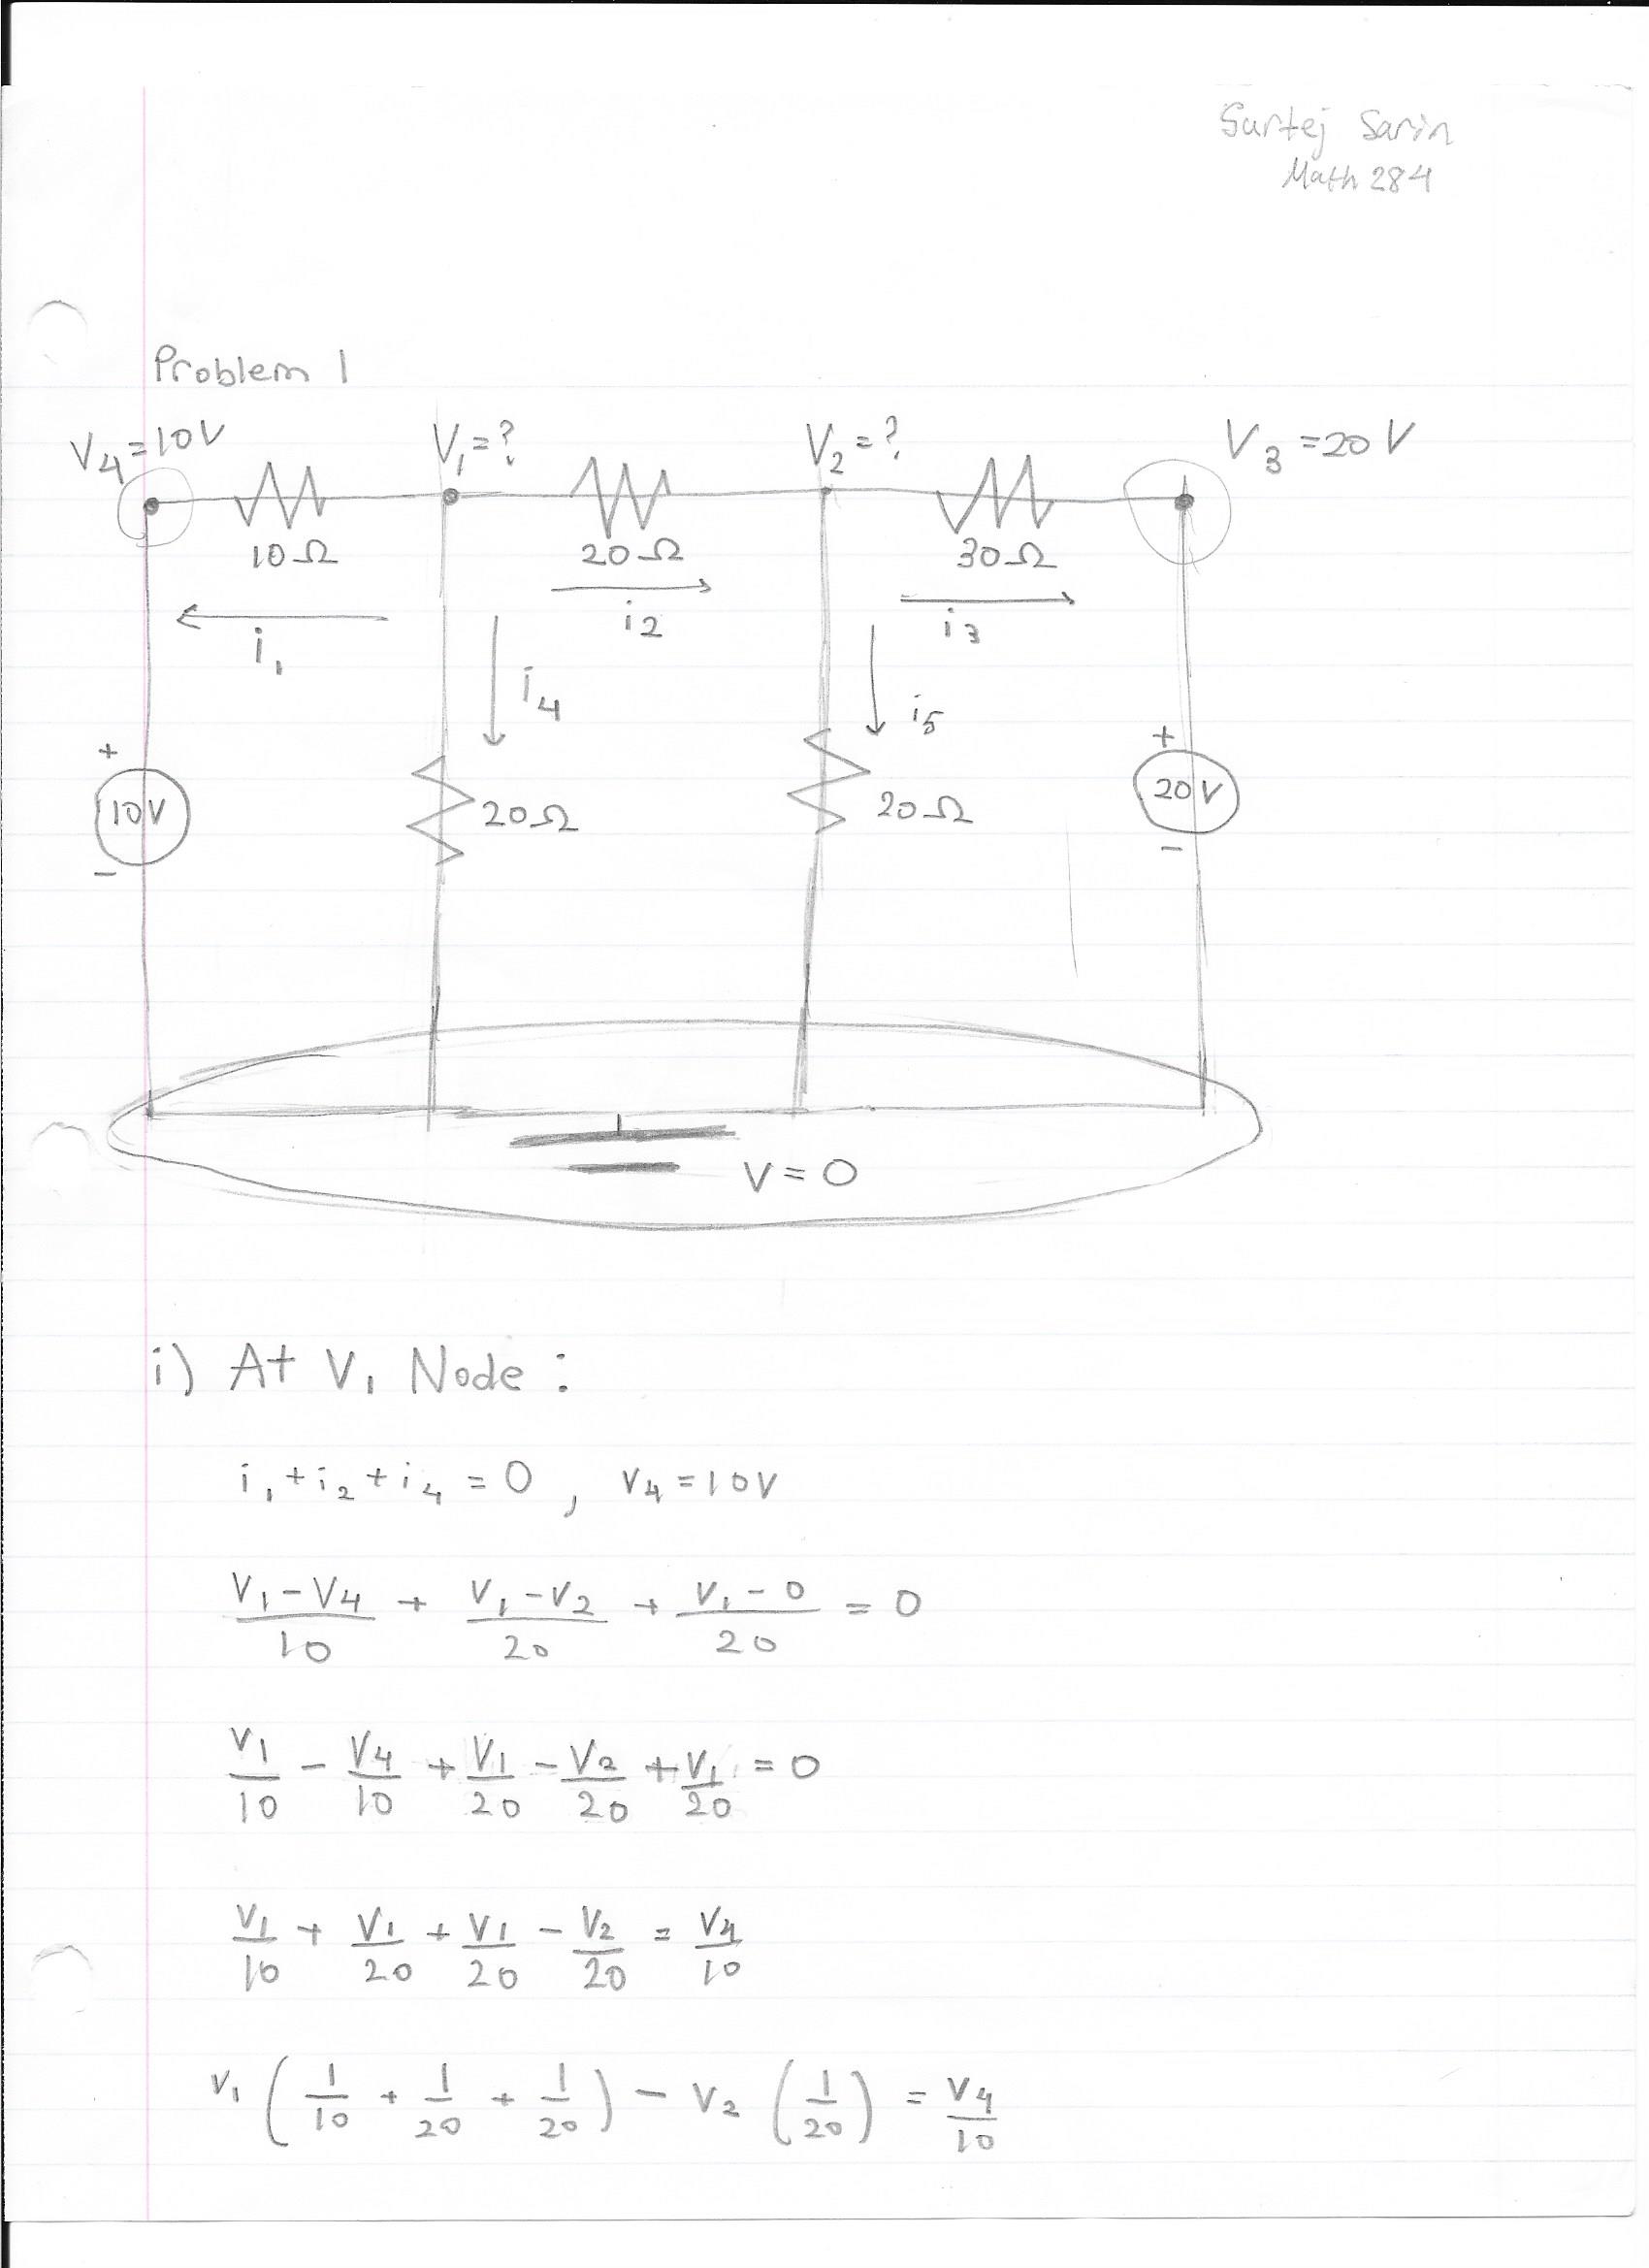 Surtej Sarin
Math 284
Problem 1
V₄=10V V₁=? V₂=? V₃=20V
10Ω 20Ω 30Ω
i₁ i₂ i₃
i₄ i₅
+ +
10V 20Ω 20Ω 20V
- -
V=0
i) At V₁ Node:
i₁+i₂+i₄=0, V₄=10V
(V₁-V₄)/10 + (V₁-V₂)/20 + (V₁-0)/20 = 0
V₁/10 - V₄/10 + V₁/20 - V₂/20 + V₁/20 = 0
V₁/10 + V₁/20 + V₁/20 - V₂/20 = V₄/10
V₁(1/10 + 1/20 + 1/20) - V₂(1/20) = V₄/10